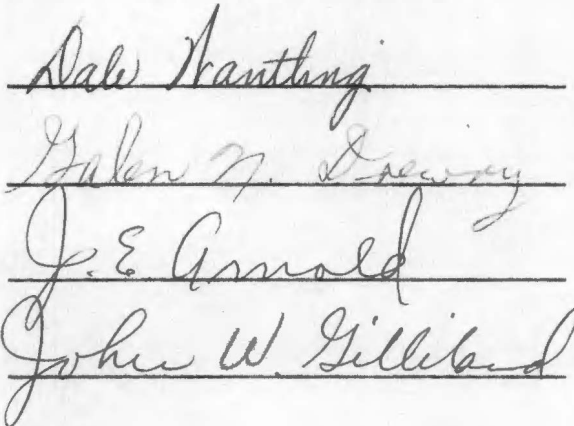 Dale Wantling
Galen N. Drewry
J. E. Arnold
John W. Gilliland